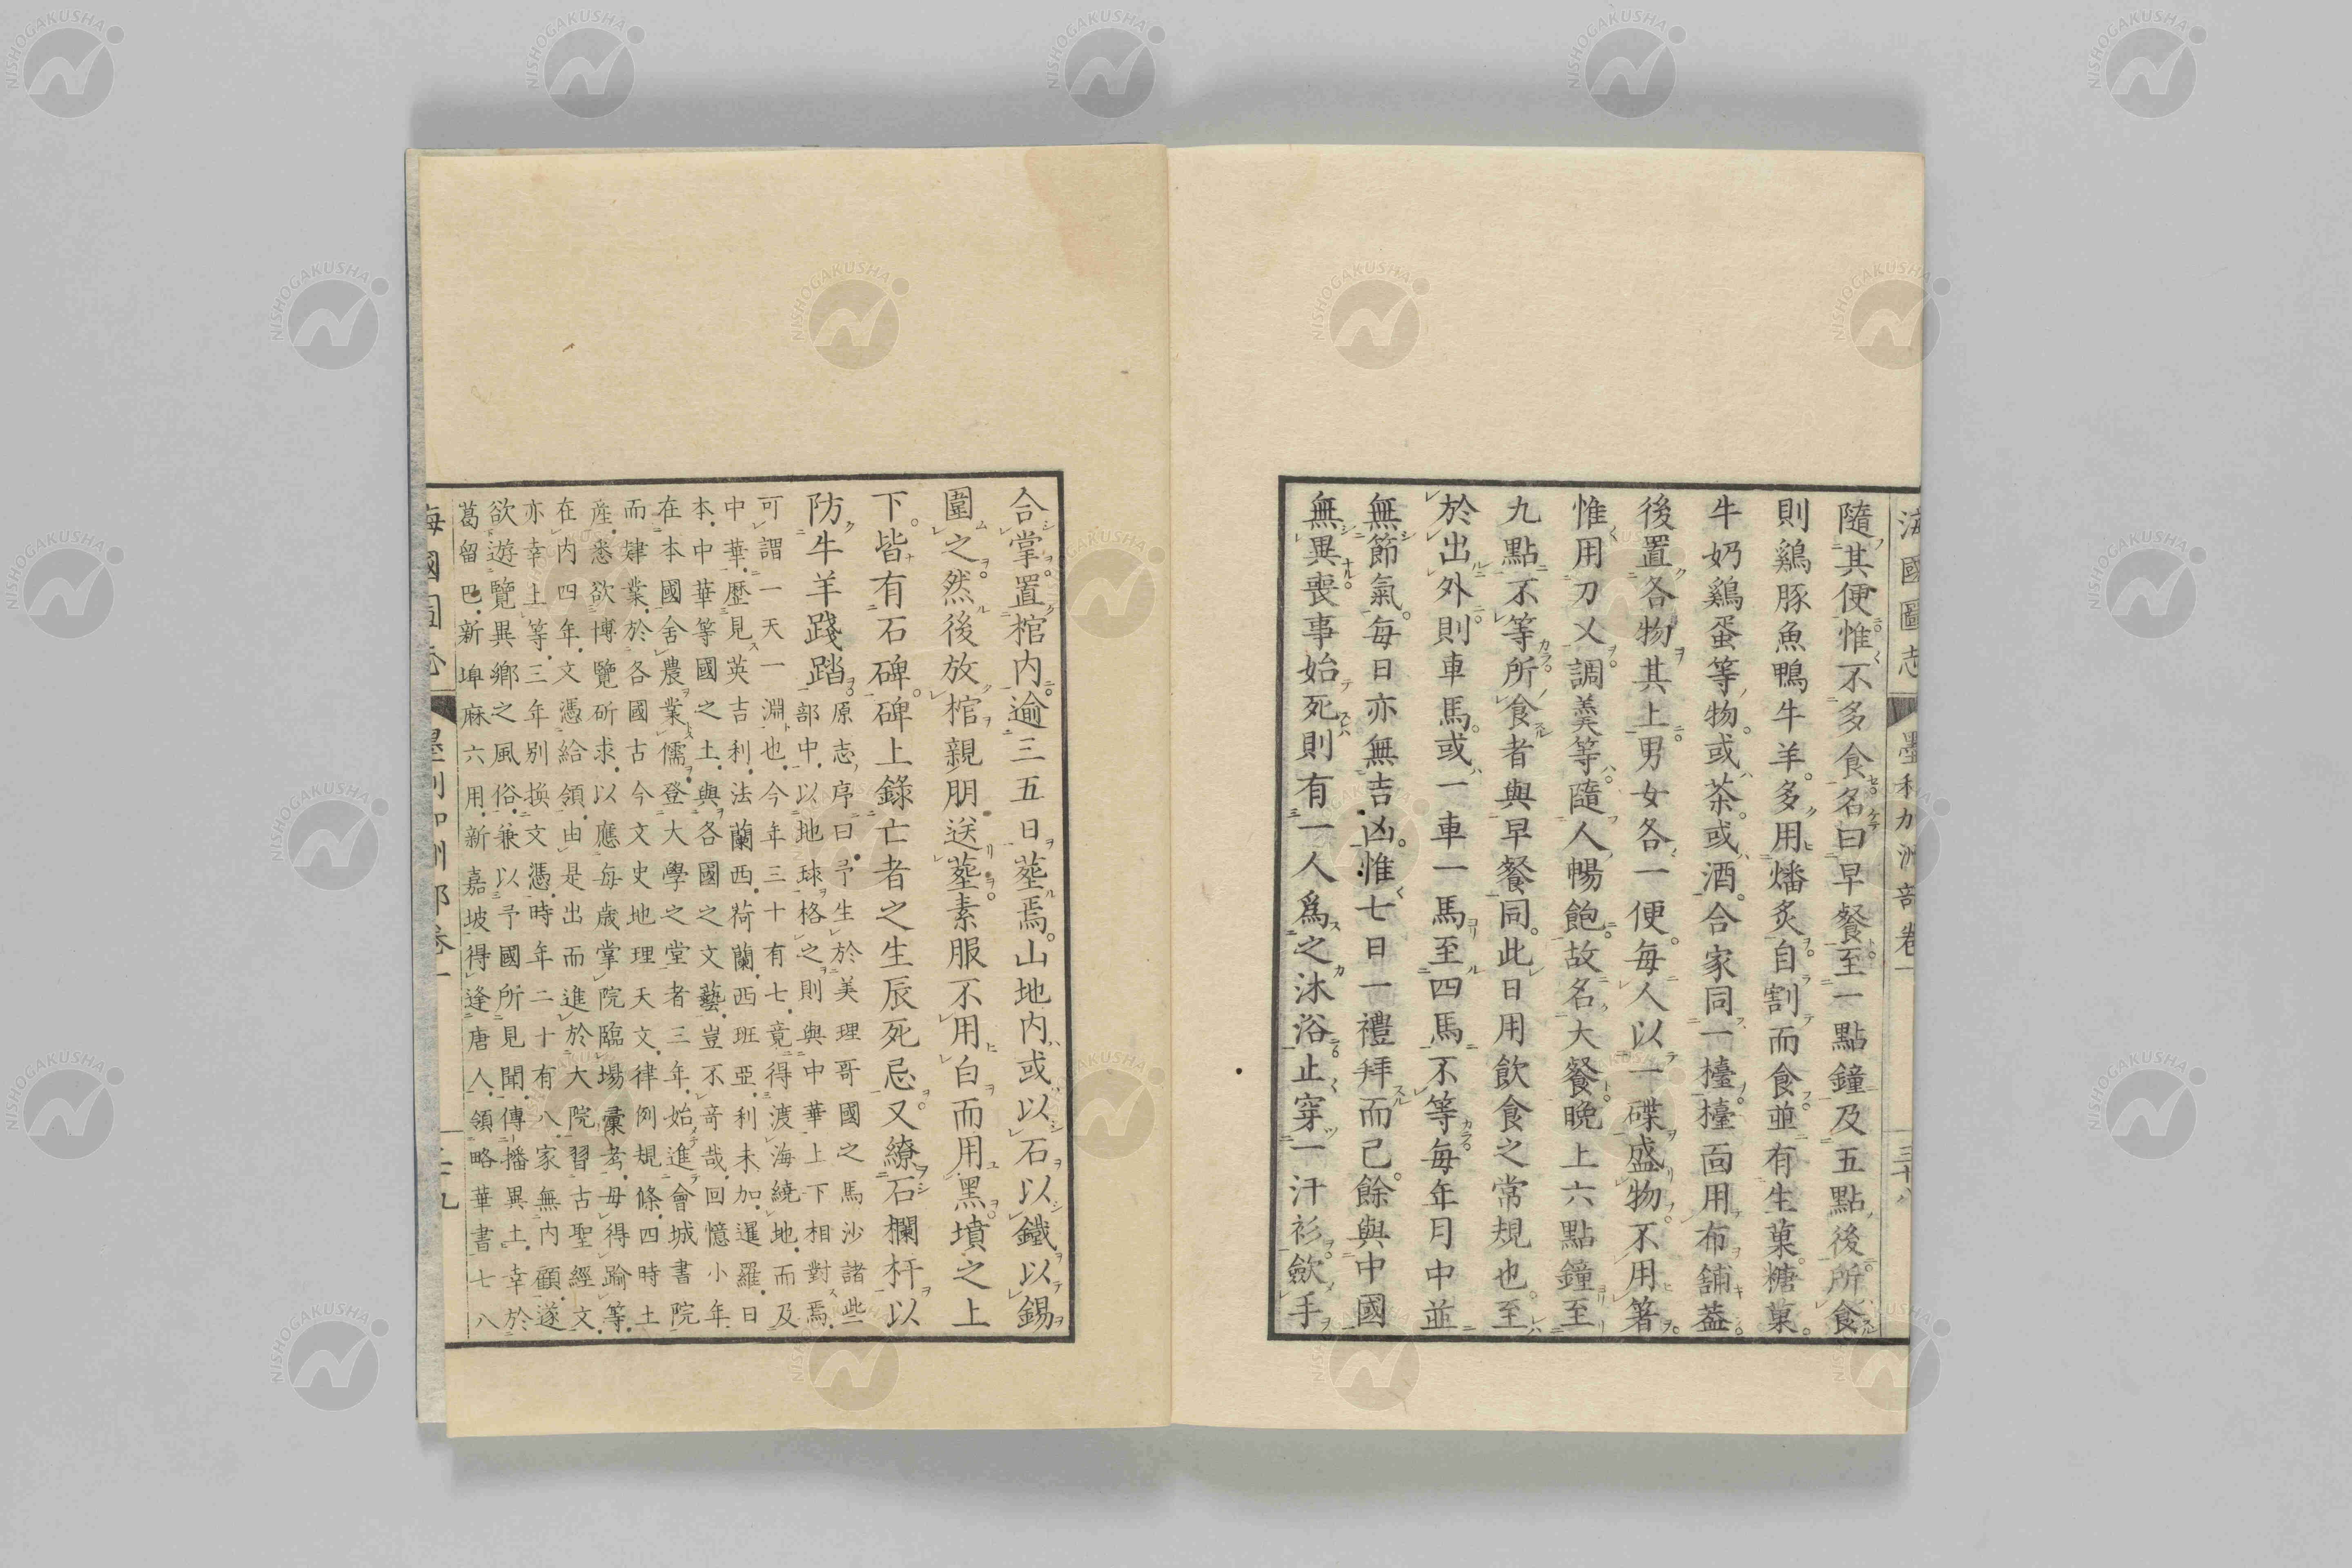 海國圖志 墨利加洲部卷一 三十八
隨其便惟不多食名曰早餐至一點鐘及五點後所食
則鷄豚魚鴨牛羊多用燔炙自割而食並有生菓糖菓
牛奶鷄蛋等物或茶或酒合家同一檯檯面用布舖葢
後置各物其上男女各一便每人以一碟盛物不用箸
惟用刀乂調羹等隨人暢飽故名大餐晚上六點鐘至
九點不等所食者與早餐同此日用飲食之常規也至
於出外則車馬或一車一馬至四馬不等每年月中並
無節氣每日亦無吉凶惟七日一禮拜而已餘與中國
無異喪事始死則有一人爲之沐浴止穿一汗衫歛手
合掌置棺内逾三五日塟焉山地内或以石以鐵以錫
圍之然後放棺親朋送塟素服不用白而用黑墳之上
下皆有石碑碑上錄亡者之生辰死忌又繚石欄杆以
防牛羊踐踏
原志序曰予生於美理哥國之馬沙諸些
部中以地球格之則與中華上下相對焉
可謂一天一淵也今年三十有七竟得渡海繞地而及
中華歷見英吉利法蘭西荷蘭西班亞利未加暹羅日
本中華等國之土與各國之文藝豈不奇哉回憶小年
在本國舍農業儒登大學之堂者三年始進會城書院
而肄業於各國古今文史地理天文律例規條四時土
産悉欲博覽斫求以應每歲掌院臨場彙考毋得踰等
在内四年文憑給領由是出而進於大院習古聖經文
亦幸土等三年別換文憑時年二十有八家無内顧遂
欲遊覽異鄉之風俗兼以予國所見聞傳播異土幸於
葛留巴新埠麻六用新嘉坡得逢唐人領略華書七八
海國圖志 墨利加洲部卷一 三十九
NISHOGAKUSHA